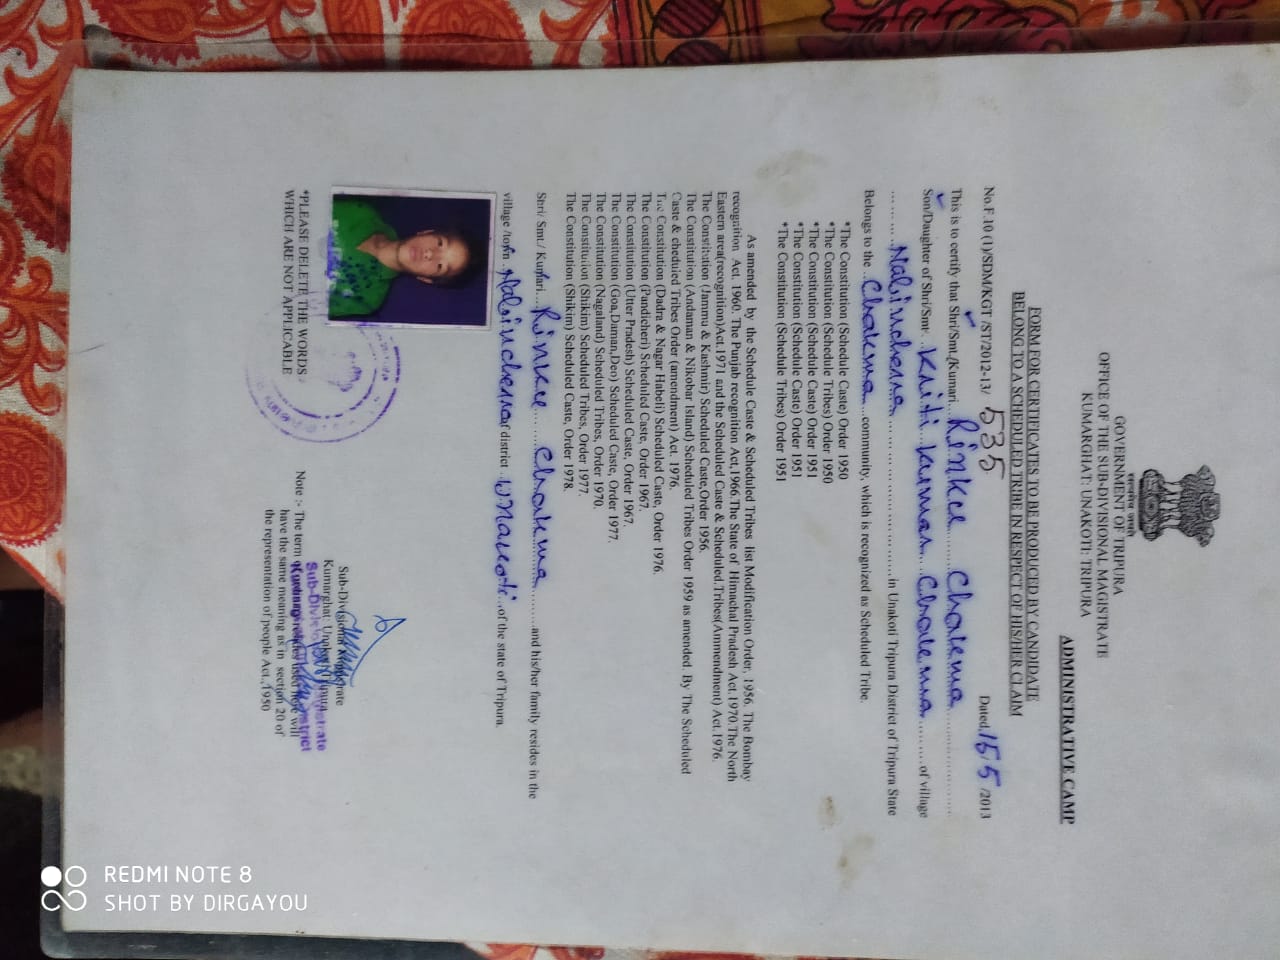 सत्यमेव जयते
GOVERNMENT OF TRIPURA
OFFICE OF THE SUB-DIVISIONAL MAGISTRATE
KUMARGHAT: UNAKOTI: TRIPURA
ADMINISTRATIVE CAMP
FORM FOR CERTIFICATES TO BE PRODUCED BY CANDIDATE
BELONG TO A SCHEDULED TRIBE IN RESPECT OF HIS/HER CLAIM
No.F.10 (1)/SDM/KGT /ST/2012-13/ 535 Dated, 15/5 /2013
This is to certify that Shri/Smt./Kumari.... Rinkee Chakma
Son/Daughter of Shri/Smt. Kriti Kumar Chakma of village
Nabincherra in Unakoti Tripura District of Tripura State
Belongs to the .. Chakma community, which is recognized as Scheduled Tribe.
*The Constitution (Schedule Caste) Order 1950
*The Constitution (Schedule Tribes) Order 1950
*The Constitution (Schedule Caste) Order 1951
*The Constitution (Schedule Caste) Order 1951
*The Constitution (Schedule Tribes) Order 1951
As amended by the Schedule Caste & Scheduled Tribes list Modification Order, 1956. The Bombay
recognition Act. 1960. The Punjab recognition Act.1966.The State of Himachal Pradesh Act.1970.The North
Eastern area(recognition)Act.1971 and the Scheduled Caste & Scheduled.Tribes(Ammendment) Act.1976.
The Constitution (Jammu & Kashmir) Scheduled Caste,Order 1956.
The Constitution (Andaman & Nikobar Island) Scheduled Tribes Order 1959 as amended. By The Scheduled
Caste & cheduled Tribes Order (amendment) Act. 1976.
The Constitution (Dadra & Nagar Habeli) Scheduled Caste, Order 1976.
The Constitution (Pandicheri) Scheduled Caste, Order 1967.
The Constitution (Utter Pradesh) Scheduled Caste, Order 1967.
The Constitution (Goa,Daman,Deo) Scheduled Caste, Order 1977.
The Constitution (Nagaland) Scheduled Tribes, Order 1970.
The Constitution (Shikim) Scheduled Tribes, Order 1977.
The Constitution (Shikim) Scheduled Caste, Order 1978.
Shri/ Smt./ Kumari.... Rinkee Chakma and his/her family resides in the
village /town Nabincherra of district Unakoti of the state of Tripura.
Sub-Divisional Magistrate
Kumarghat: Unakoti Tripura
*PLEASE DELETE THE WORDS
WHICH ARE NOT APPLICABLE
Note :- The term will
have the same meaning as in section 20 of
the representation of people Act.,1950
REDMI NOTE 8
SHOT BY DIRGAYOU